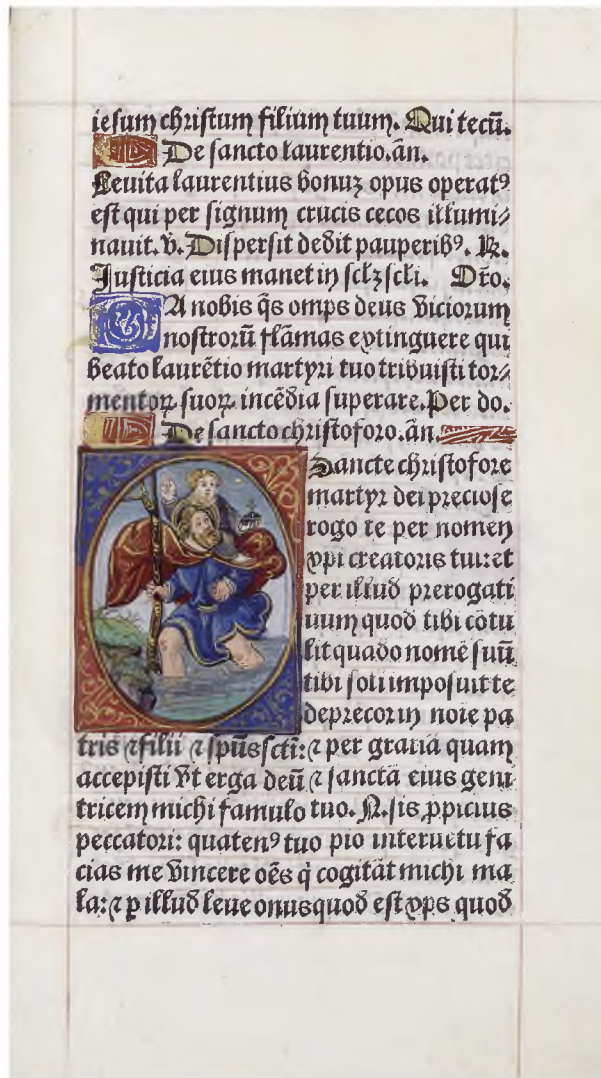 iesum christum filium tuum. Qui tecū.
De sancto laurentio. ān.
Leuita laurentius bonuʒ opus operatꝰ
est qui per signum crucis cecos illumi⸗
nauit. v̄. Dispersit dedit pauperibꝰ. ℞.
Justicia eius manet in scł̓ʒ scłi. Or̄o.
DA nobis q̄s om̄ps deus viciorum
nostrorū flāmas extinguere qui
beato laurētio martyri tuo tribuisti tor⸗
mentoꝝ suoꝝ incēdia superare. Per do.
De sancto christoforo. ān.
Sancte christofore
martyr dei preciose
rogo te per nomen
xpi creatoris tui: et
per illud prerogati
uum quod tibi cōtu
lit quādo nomē suū
tibi soli imposuit te
deprecor in noīe pa
tris ⁊ filii ⁊ spūs sctī: ⁊ per gratiā quam
accepisti vt erga deū ⁊ sanctā eius geni
tricem michi famulo tuo. N. sis ꝓpicius
peccatori: quatenꝰ tuo pio interuētu fa
cias me vincere oēs q̄ cogitāt michi ma
la: ⁊ ꝑ illud leue onus quod est xp̄s quod